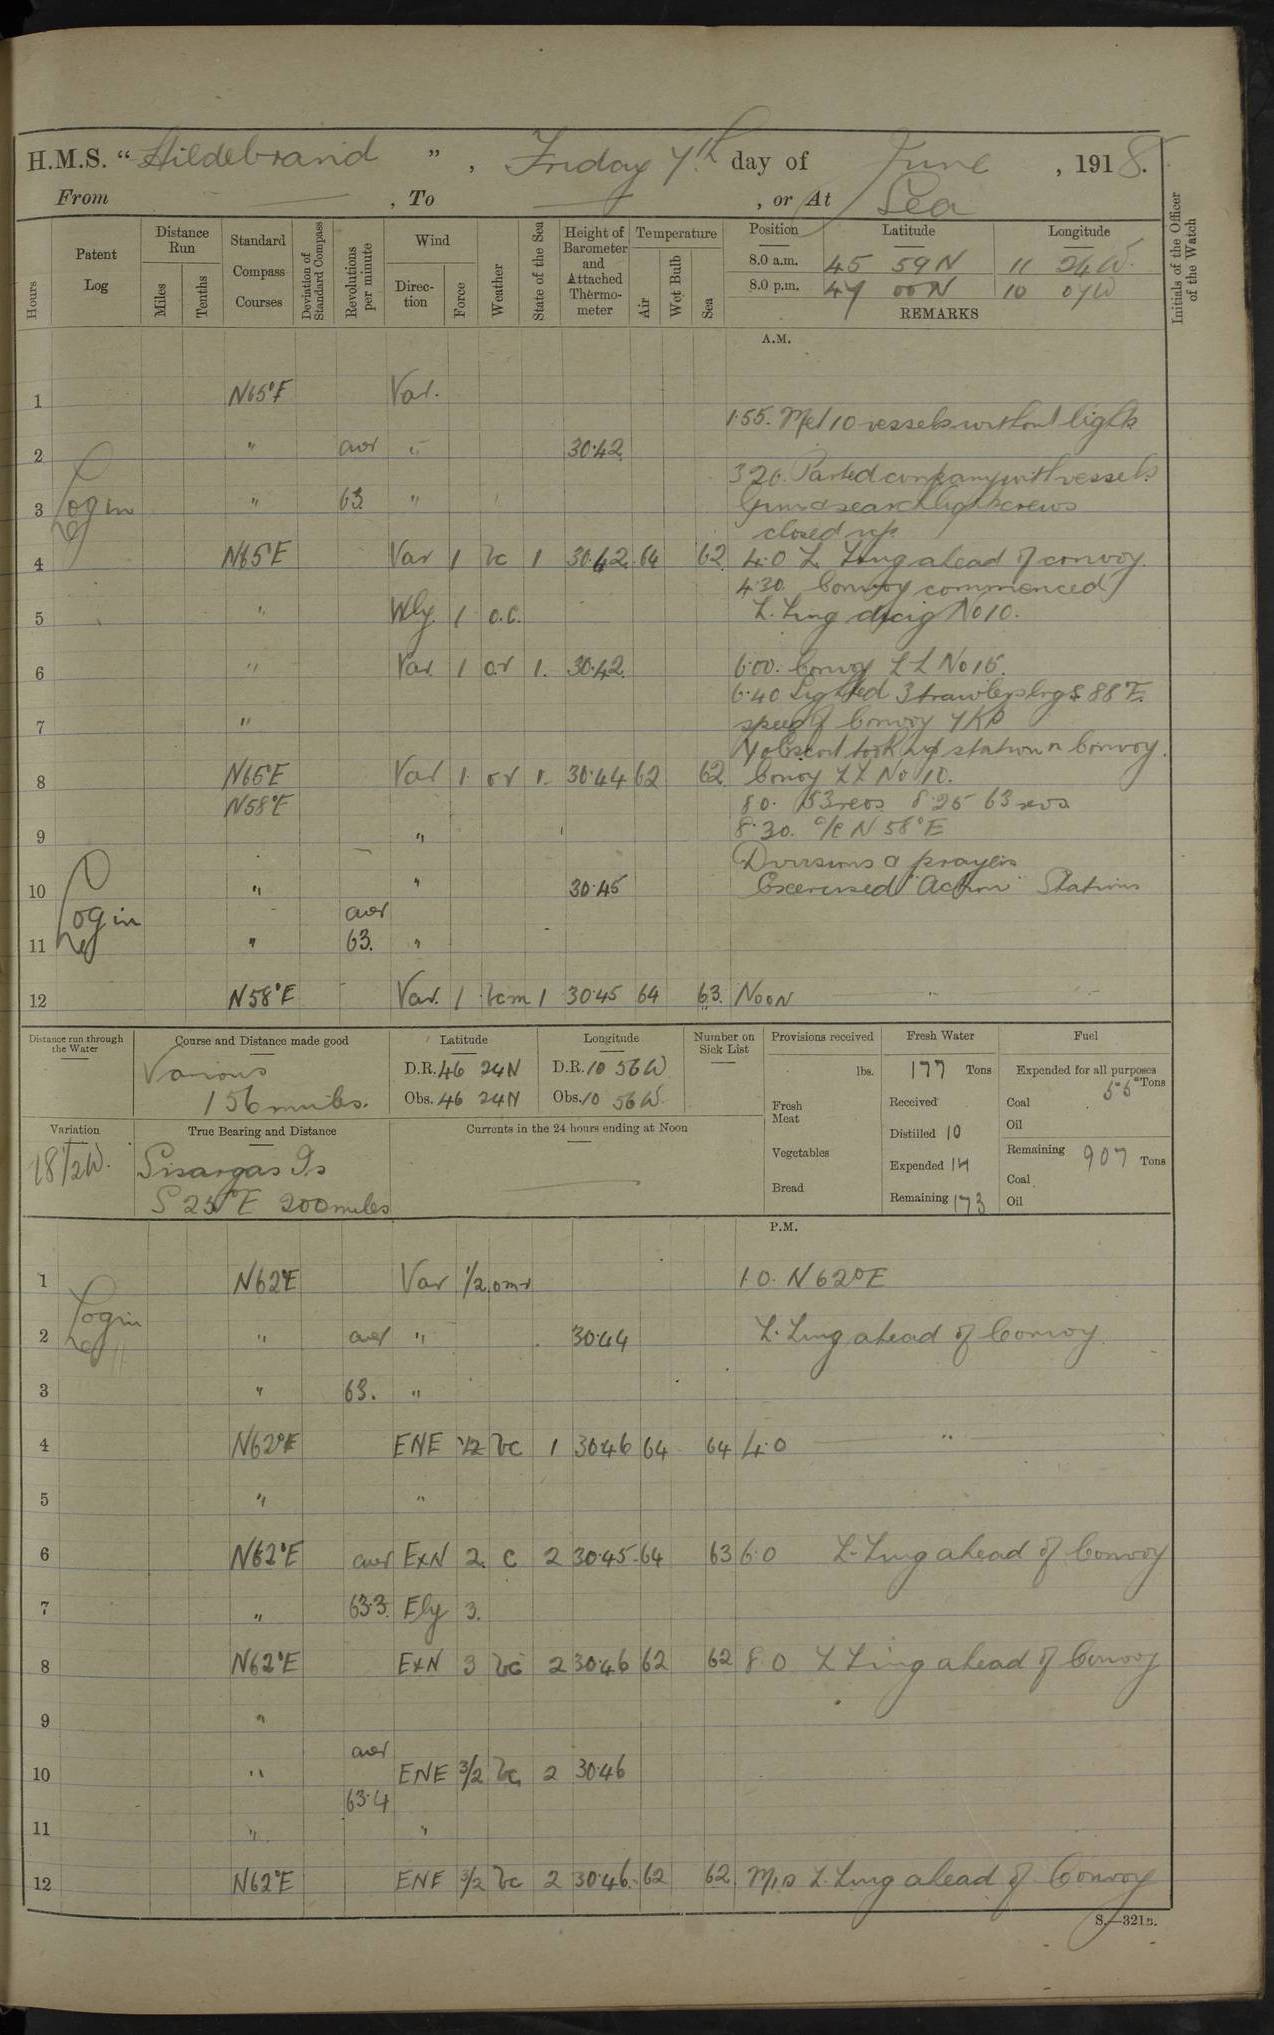 H.M.S. "Hildebrand", Friday 7th day of June, 1918.
From — , To — , or At Sea
Hours
Patent Log
Distance Run
Miles
Tenths
Standard Compass Courses
Deviation of Standard Compass
Revolutions per minute
Wind
Direction
Force
Weather
State of the Sea
Height of Barometer and Attached Thermometer
Temperature
Air
Wet Bulb
Sea
Position Latitude Longitude
8.0 a.m. 45 59 N 11 24 W.
8.0 p.m. 47 00 N 10 07 W
REMARKS
Initials of the Officer of the Watch
A.M.
1 N65°E Var.
1.55. Met 10 vessels without lights
2 " aver " 30.42
3.20. Parted company with vessels.
3 Log in " 63. "
Guns & searchlight crews
closed up
4 N65°E Var 1 bc 1 30.42 64 62 4.0 Z. Zing ahead of convoy.
4.30. Convoy commenced
5 " Wly. 1 o.c. Z. Zing No 10.
6 " Var. 1 or 1. 30.42. 6.00. Convoy Z Z No 15.
6.40 Sighted 3 trawlers brg S 88°E.
7 " speed of Convoy 7 Kts
station on Convoy.
8 N65°E Var 1. or 1. 30.44 62 62 Convoy Z Z No 10.
N58°E 8.0. 53 revs 8.25 63 revs
9 " 8.30. a/c N 58°E
Divisions & prayers
10 " " 30.45 Exercised "Action" Stations
Log in aver
11 " 63. "
12 N58°E Var. 1 bcm 1 30.45 64 63. Noon "
Distance run through the Water
Course and Distance made good
Various
156 miles.
Latitude
D.R. 46 24 N
Obs. 46 24 N
Longitude
D.R. 10 56 W
Obs. 10 56 W.
Number on Sick List
Provisions received
lbs.
Fresh Meat
Vegetables
Bread
Fresh Water
177 Tons
Received
Distilled 10
Expended 14
Remaining 173
Fuel
Expended for all purposes
55 Tons
Coal
Oil
Remaining 907 Tons
Coal
Oil
Variation
18½W.
True Bearing and Distance
Sisargas Is
S 25°E 200 miles
Currents in the 24 hours ending at Noon
P.M.
1 N62°E Var ½ omr 1.0. N62°E
Log in
2 " aver " 30.44 Z. Zing ahead of Convoy
3 " 63. "
4 N62°E ENE ½ bc 1 30.46 64 64 4.0 "
5 " "
6 N62°E aver ExN 2. c 2 30.45 64 63 6.0 Z. Zing ahead of Convoy
7 " 63.3. Ely 3.
8 N62°E ExN 3 bc 2 30.46 62 62 8.0 Z Zing ahead of Convoy
9 "
aver
10 " ENE 3/2 bc 2 30.46
63.4
11 " "
12 N62°E ENE 3/2 bc 2 30.46 62 62. Mid Z. Zing ahead of Convoy
S.—321B.